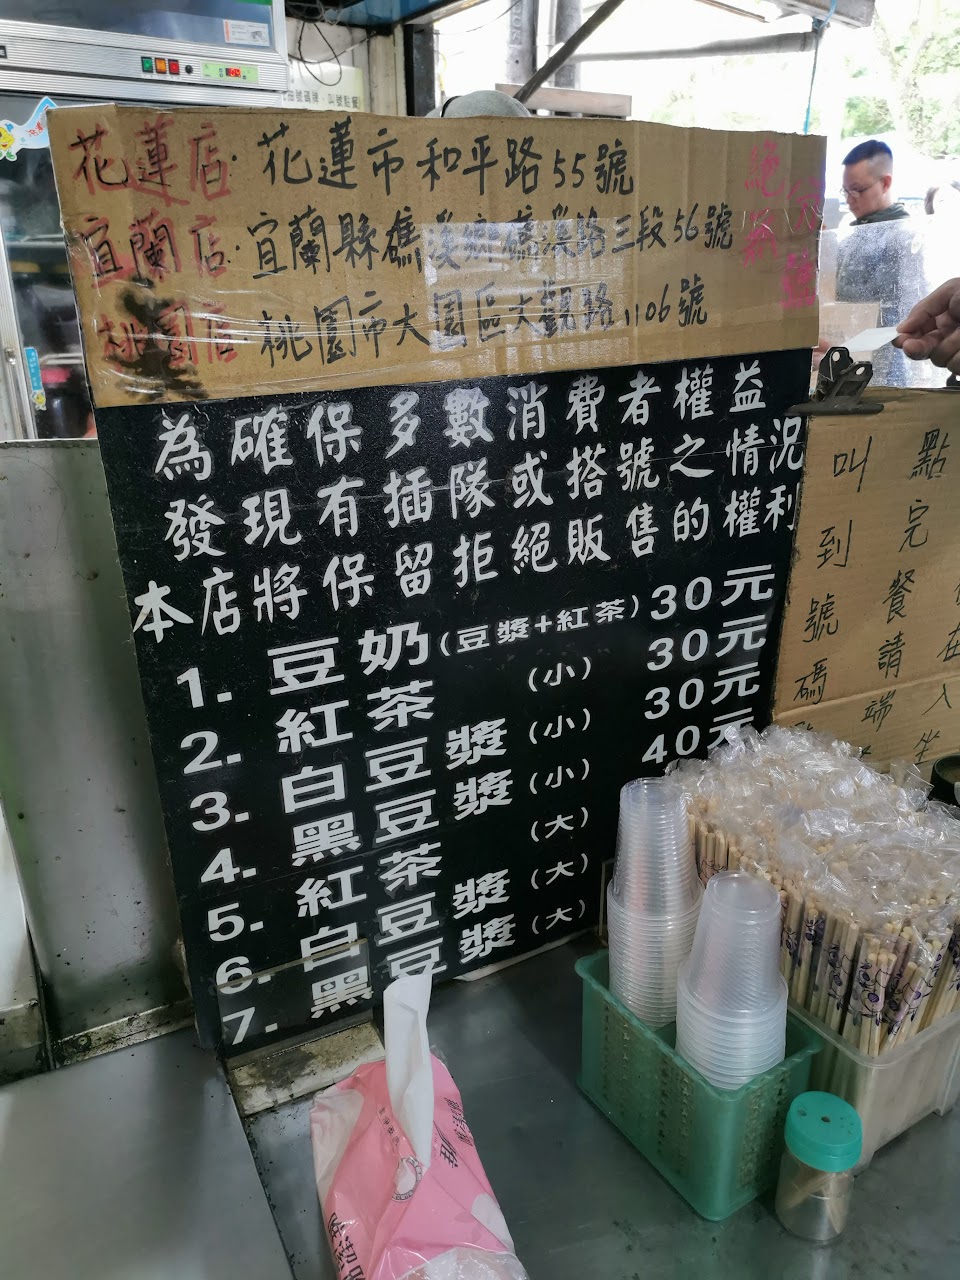 花蓮店：花蓮市和平路55號
宜蘭店：宜蘭縣礁溪鄉礁溪路三段56號
桃園店：桃園市大園區大觀路1106號
絕
為確保多數消費者權益
發現有插隊或搭號之情況
本店將保留拒絕販售的權利
1. 豆奶(豆漿+紅茶) 30元
2. 紅茶 (小) 30元
3. 白豆漿 (小) 30元
4. 黑豆漿 (小) 40元
5. 紅茶 (大)
6. 白豆漿 (大)
7. 黑豆漿 (大)
點完餐請
叫到號碼